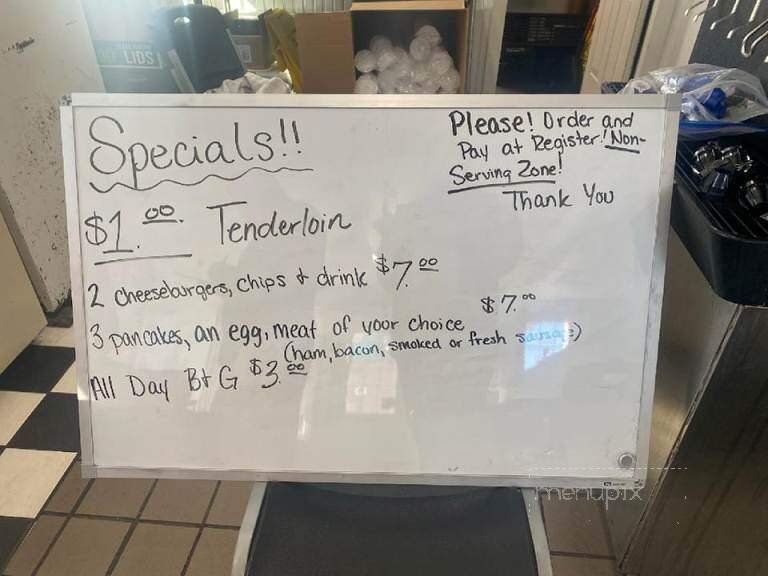 LIDS
Specials!!
Please! Order and
Pay at Register! Non-
Serving Zone!
Thank You
$1.00 Tenderloin
2 cheeseburgers, chips & drink $7.00
$7.00
3 pancakes, an egg, meat of your choice
(ham, bacon, smoked or fresh sausage)
All Day B+G $3.00
menupix